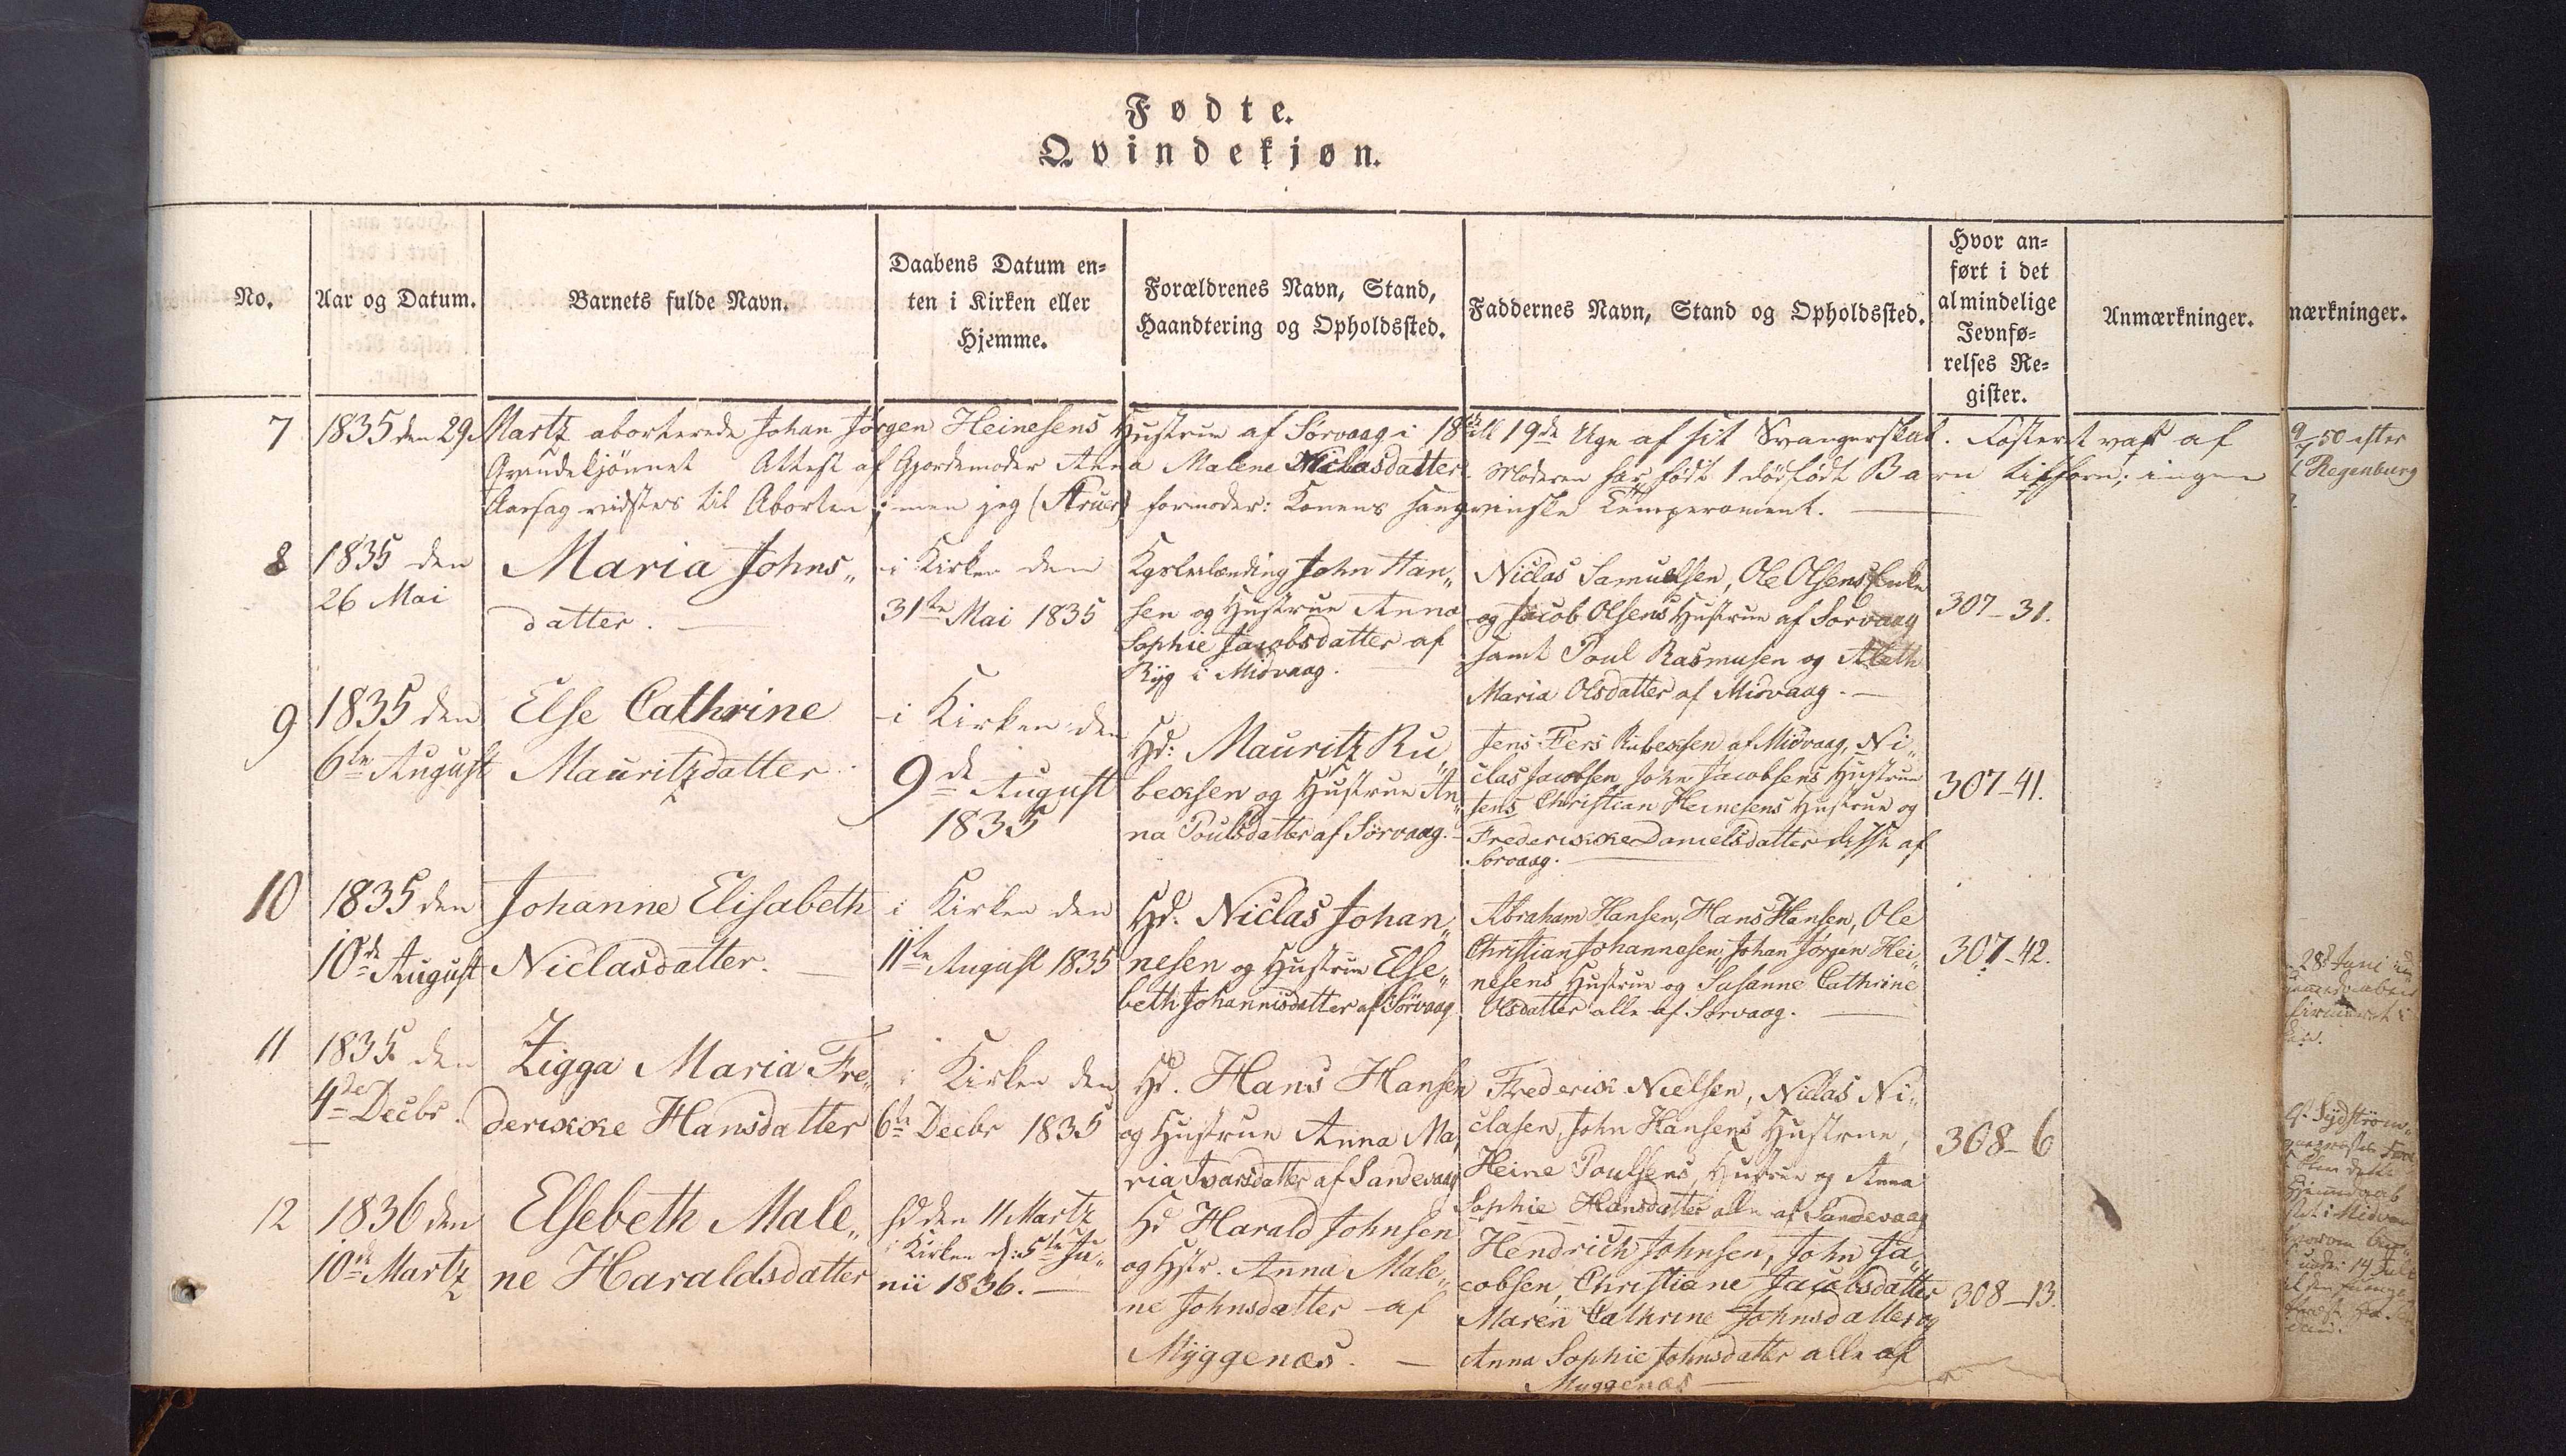 Fødte.
Qvindekjøn.
No.
Aar og Datum.
Barnets fulde Navn.
Daabens Datum en=
ten i Kirken eller
Hjemme.
Forældrenes Navn, Stand,
Haandtering og Opholdssted.
Faddernes Navn, Stand og Opholdssted.
Hvor an=
ført i det
almindelige
Jevnfø=
relses Re=
gister.
Anmærkninger.
mærkninger.
7 1835 den 29 Martz aborterede Johan Jørgen Heinesens Hustrue af Sørvaag i 18de til 19de Uge af sit Svangerskab. Fosteret var af
Qvindekjönnet Attest af Gjordemoder Anna Malene Niclasdatter. Moderen har födt 1 dödfödt Barn tilforn; ingen
Aarsag vidstes til Aborten; men jeg (Struer) formoder: Konens sangvinske Temperament.
8
1835 den
26 Mai
Maria Johns„
datter.
i Kirken den
31te Mai 1835
John Han„
sen og Hustrue Anna
Sophie Jacobsdatter af
Ryg i Midvaag.
Niclas Samuelsen, Ole Olsens Enke
og Jacob Olsens Hustrue af Sorvaag
samt Poul Rasmusen og
Maria Olsdatter af Midvaag.
307–31.
9
1835 den
6te August
Else Cathrine
Mauritzdatter
i Kirken den
9de August
1835
Hd: Mauritz Ru„
beksen og Hustrue An„
na Poulsdatter af Sörvaag.
Jens Fers Rubeksen af Midvaag, Ni„
clas Jacobsen, John Jacobsens Hustrue
Jens Christian Heinesens Hustrue og
Frederikke Danielsdatter af
Sorvaag.
307–41.
10
1835 den
10de August
Johanne Elisabeth
Niclasdatter.
i Kirken den
11te August 1835
Hd. Niclas Johan„
nesen og Hustrue Else„
beth Johannisdatter af Sörvaag
Abraham Hansen, Hans Hansen, Ole
Christian Johannesen, Johan Jörgen Hei„
nesens Hustrue og Susanne Cathrine
Olsdatter alle af Sorvaag.
307–42.
11
1835 den
4de Decbr.
Zigga Maria Fre„
derikke Hansdatter
i Kirken den
6te Decbr 1835
Hd. Hans Hansen
og Hustrue Anna Ma„
ria Ivarsdatter af Sandevaag
Frederik Nielsen, Niclas Ni„
clasen, John Hansens Hustrue,
Heine Poulsens Hustrue og Anna
Sophie Hansdatter alle af Sandevaag
308–6
12
1836 den
10de Martz
Elsebeth Male„
ne Haraldsdatter
hd den 11 Martz
i Kirken d: 5te Ju„
nii 1836.
Hd Harald Johnsen
og Hstr. Anna Male„
ne Johnsdatter af
Myggenæs.
Hendrich Johnsen, John Ja„
cobsen, Christiane Jacobsdatter
Maren Cathrine Johnsdatter og
Anna Sophie Johnsdatter alle af
Myggenæs
308–13.
50 efter
Regenburg
28de Juni